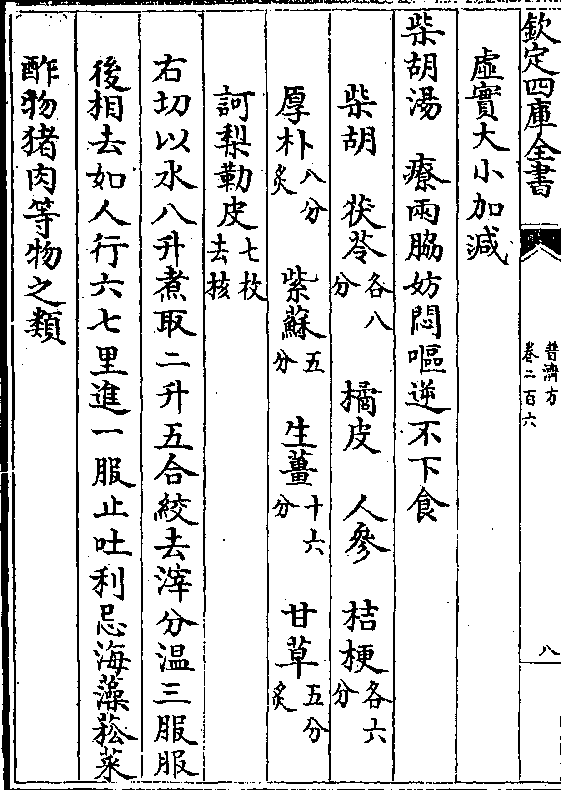 欽定四庫全書
普濟方
卷二百六
八
虛實大小加減
柴胡湯 療兩脇妨悶嘔逆不下食
柴胡 茯苓各八分 橘皮 人參 桔梗各六分
厚朴八分炙 紫蘇五分 生薑十六分 甘草五分炙
訶梨勒皮七枚去核
右切以水八升煮取二升五合絞去滓分温三服服
後相去如人行六七里進一服止吐利忌海藻菘菜
酢物猪肉等物之類